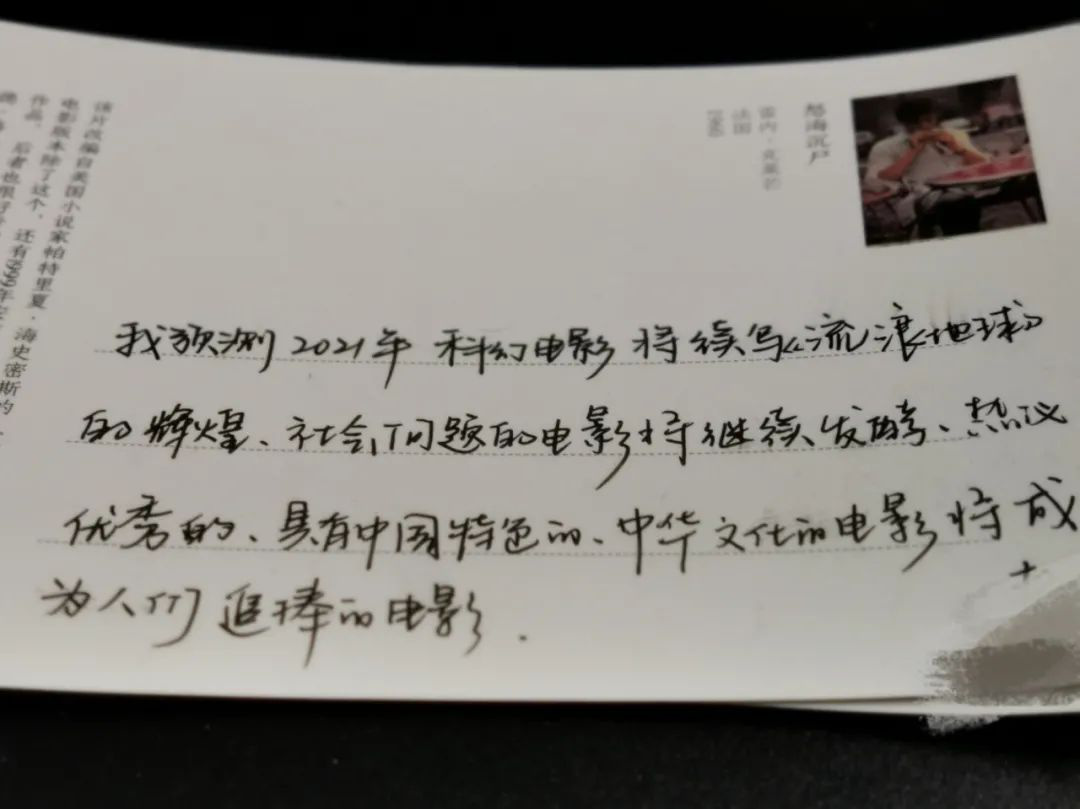 怒海沉尸
雷内·克莱芒
法国
1960
该片改编自美国小说家帕特里夏·海史密斯的
电影版本除了这个，还有1999年
作品，后者也很好
我预测2021年 科幻电影将续写《流浪地球》
的辉煌、社会问题的电影将继续发酵、热议
优秀的、具有中国特色的、中华文化的电影将成
为人们追捧的电影.